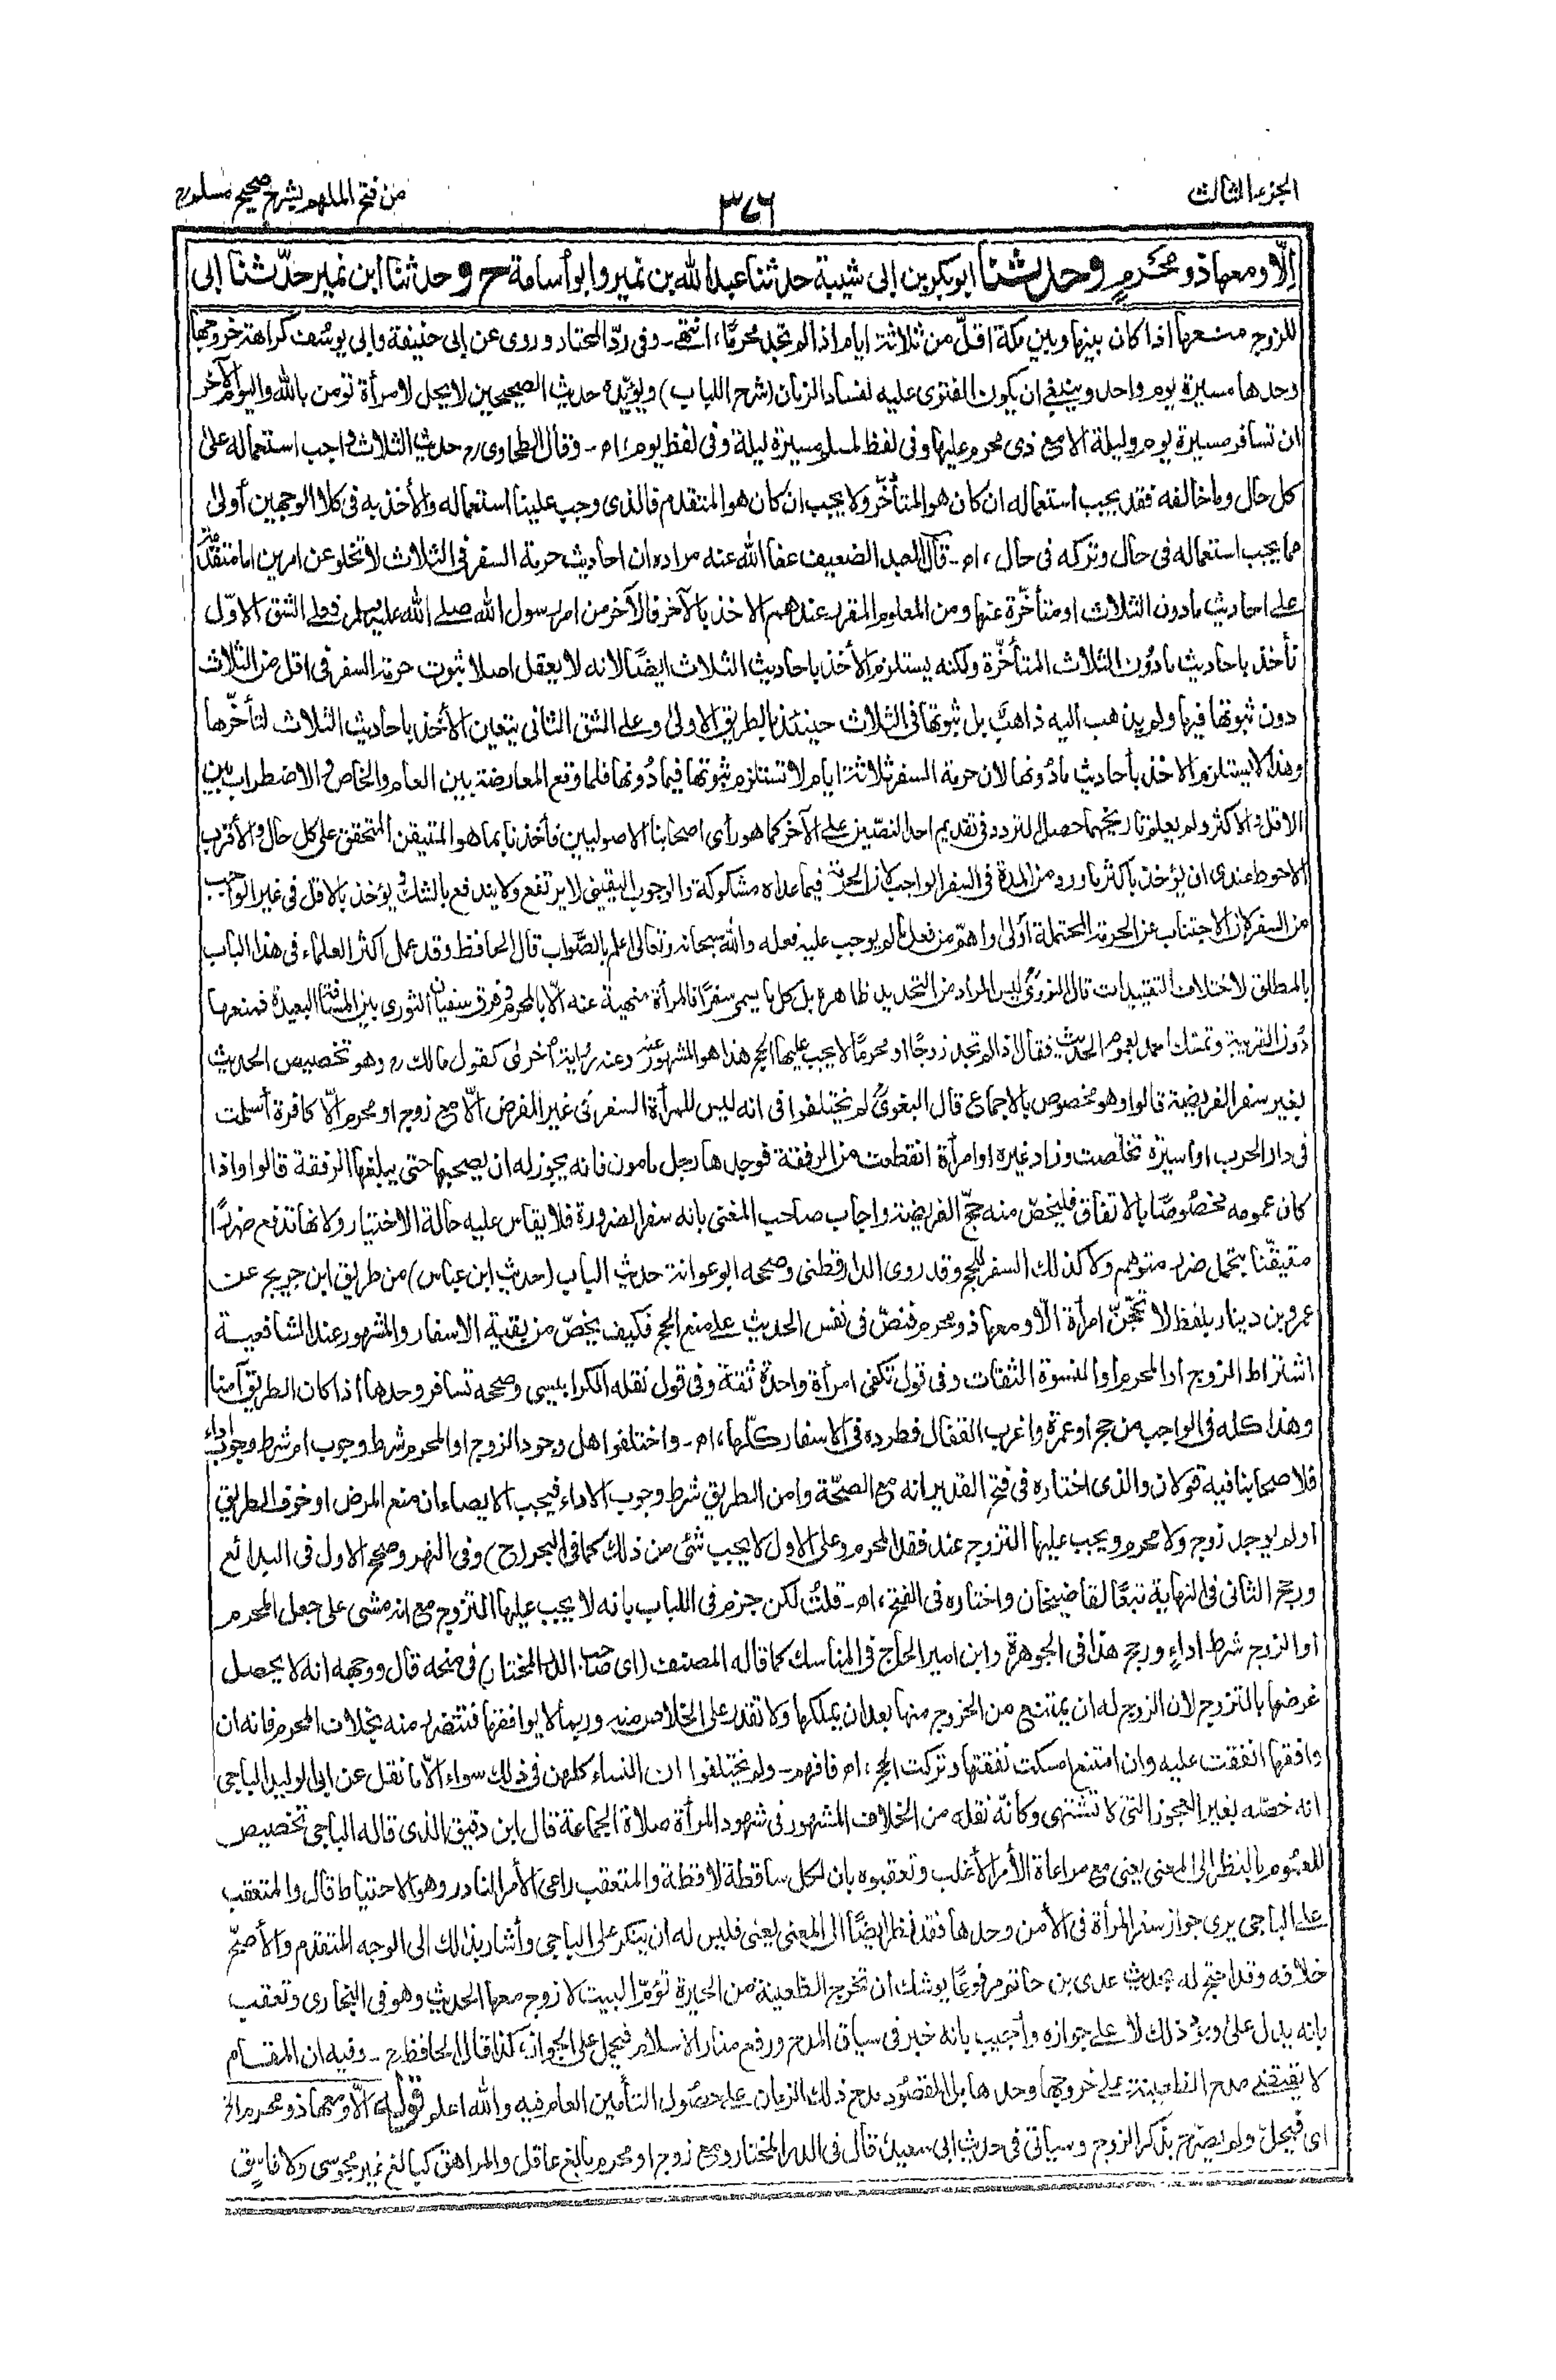 الجزء الثالث
٣٧٦
من فتح الملهم بشرح صحيح مسلم
إلّا ومعها ذو محرمٍ وحدثنا ابوبكر بن ابى شيبة حدثنا عبدالله بن نمير وابو أسامة ح وحدثنا ابن نمير حدّثنا ابى
للزوج منعها اذا كان بينها وبين مكة اقلّ من ثلاثة ايام اذا لم تجد محرمًا، انتهى۔ وفى ردّ المحتار وروى عن ابى حنيفة وابى يوسف كراهة خروجها
وحدها مسيرة يوم واحد وينبغى ان يكون الفتوى عليه لفساد الزمان (شرح اللباب) ويؤيّده حديث الصحيحين لا يحل لامرأة تؤمن بالله واليوم الآخر
ان تسافر مسيرة يوم وليلة الا مع ذى محرم عليها وفى لفظ لمسلم مسيرة ليلة وفى لفظ يوم، اه۔ وقال الطحاوى رح حديث الثلاث واجب استعماله على
كل حال وما خالفه فقد يجب استعماله ان كان هو المتأخّر ولا يجب ان كان هو المتقدم فالذى وجب علينا استعماله والأخذ به فى كلا الوجهين أولى
مما يجب استعماله فى حال وتركه فى حال، اه۔ قال العبد الضعيف عفا الله عنه مراده ان احاديث حرمة السفر فى الثلاث لا تخلو عن امرين اما متقدّمة
على احاديث مادون الثلاث او متأخّرة عنها ومن المعلوم المقرر عندهم الاخذ بالآخر فالآخر من امر رسول الله صلى الله عليه وسلم فعلى الشق الاوّل
نأخذ باحاديث مادون الثلاث المتأخّرة ولكنه يستلزم الأخذ باحاديث الثلاث ايضًا لانه لا يعقل اصلا ثبوت حرمة السفر فى اقل من الثلاث
دون ثبوتها فيها ولم يذهب اليه ذاهبٌ بل ثبوتها فى الثلاث حينئذ بالطريق الاولى وعلى الشق الثانى يتعين الأخذ باحاديث الثلاث لتأخّرها
وهذا لا يستلزم الاخذ بأحاديث مادونها لان حرمة السفر ثلاثة ايام لا تستلزم ثبوتها فيما دونها فلما وقع المعارضة بين العام والخاص والاضطراب بين
الاقل والاكثر ولم يعلم تاريخهما حصل التردد فى تقديم احد النصّين على الآخر كما هو رأى اصحابنا الاصوليين فأخذنا بما هو المتيقن المتحقق على كل حال والأقرب
الاحوط عندى ان يؤخذ بأكثر ما ورد من المدة فى السفر الواجب لان الحرمة فيما عداه مشكوكة والوجوب اليقينى لا يرتفع ولا يندفع بالشك ويؤخذ بالاقل فى غير الواجب
من السفر لان الاجتناب عن الحرمة المحتملة أولى واهمّ من فعل ما لم يوجب عليه فعله والله سبحانه وتعالى اعلم بالصّواب قال الحافظ وقد عمل اكثر العلماء فى هذا الباب
بالمطلق لاختلاف التقييدات قال النووىّ ليس المراد من التحديد ظاهره بل كل ما يسمى سفرًا فالمرأة منهية عنه الّا بالمحرم وفرق سفيان الثورى بين المسافة البعيدة فمنعها
دون القريبة وتمسّك احمد بعموم الحديث فقال اذا لم تجد زوجًا او محرمًا لا يجب عليها الحج هذا هو المشهور عنه وعنه رواية أخرى كقول مالك رح وهو تخصيص الحديث
بغير سفر الفريضة قالوا وهو مخصوص بالاجماع قال البغوىّ لم يختلفوا فى انه ليس للمرأة السفر فى غير الفرض الّا مع زوج او محرم الّا كافرة أسلمت
فى دار الحرب او اسيرة تخلّصت وزاد غيره او امرأة انقطعت من الرفقة فوجدها رجل مامون فانه يجوز له ان يصحبها حتى يبلغها الرفقة قالوا واذا
كان عمومه مخصوصًا بالاتفاق فليخصّ منه حجّ الفريضة واجاب صاحب المغنى بانه سفر الضرورة فلا يقاس عليه حالة الاختيار ولانها تدفع ضررًا
متيقّنا بتحمل ضرر متوهم ولا كذلك السفر للحج وقد روى الدارقطنى وصححه ابوعوانة حديث الباب (حديث ابن عباس) من طريق ابن جريج عن
عمرو بن دينار بلفظ لا تحجّنّ امرأة الّا ومعها ذو محرم فنصّ فى نفس الحديث على منع الحج فكيف يخصّ من بقية الاسفار والمشهور عند الشافعية
اشتراط الزوج او المحرم او النسوة الثقات وفى قول تكفى امرأة واحدة ثقة وفى قول نقله الكرابيسى وصححه تسافر وحدها اذا كان الطريق آمنا
وهذا كله فى الواجب من حج او عمرة واغرب القفال فطرده فى الاسفار كلّها، اه۔ واختلفوا هل وجود الزوج او المحرم شرط وجوب ام شرط وجوب اداء
فلاصحابنا فيه قولان والذى اختاره فى فتح القدير انه مع الصحّة وامن الطريق شرط وجوب الاداء فيجب الايصاء ان منع المرض او خوف الطريق
او لم يوجد زوج ولا محرم ويجب عليها التزوج عند فقد المحرم وعلى الاول لا يجب شئ من ذلك كما فى البحر (ح) وفى النهر وصحح الاول فى البدائع
ورجح الثانى فى النهاية تبعًا لقاضيخان واختاره فى الفتح، اه۔ قلتُ لكن جزم فى اللباب بانه لا يجب عليها التزوج مع انه مشى على جعل المحرم
او الزوج شرط اداءٍ ورجح هذا فى الجوهرة وابن امير الحاج فى المناسك كما قاله المصنف (اى صاحب الدر المختار) فى منحه قال ووجهه انه لا يحصل
غرضها بالتزوج لان الزوج له ان يمتنع من الخروج معها بعد ان يملكها ولا تقدر على الخلاص منه وربما لا يوافقها فتتضرر منه بخلاف المحرم فانه ان
وافقها انفقت عليه وان امتنع امسكت نفقتها وتركت الحج، اه فافهم۔ ولم يختلفوا ان النساء كلهن فى ذلك سواء الّا ما نقل عن ابى الوليد الباجى
انه خصّه بغير العجوز التى لا تشتهى وكأنّه نقله من الخلاف المشهور فى شهود المرأة صلاة الجماعة قال ابن دقيق الذى قاله الباجى تخصيص
للعموم بالنظر الى المعنى يعنى مع مراعاة الأمر الأغلب وتعقبوه بان لكل ساقطة لاقطة والمتعقب راعى الأمر النادر وهو الاحتياط قال والمتعقب
على الباجى يرى جواز سفر المرأة فى الأمن وحدها فقد نظر ايضًا الى المعنى يعنى فليس له ان ينكر على الباجى وأشار بذلك الى الوجه المتقدم والأصحّ
خلافه وقد احتج له بحديث عدى بن حاتم مرفوعًا يوشك ان تخرج الظعينة من الحيرة تؤمّ البيت لا زوج معها الحديث وهو فى البخارى وتعقب
بانه يدل على وجود ذلك لا على جوازه وأجيب بانه خبر فى سياق المدح ورفع منار الاسلام فيحمل على الجواز، كذا قال الحافظ رح۔ وفيه ان المقام
لا يقتضى مدح الظعينة على خروجها وحدها بل المقصود مدح ذلك الزمان على حصول التأمين العام فيه والله اعلم قوله الّا ومعها ذو محرم الخ
اى فيحلّ ولم يصرّح بذكر الزوج وسيأتى فى حديث ابى سعيد قال فى الدر المختار ومع زوج او محرم بالغ عاقل والمراهق كبالغ غير مجوسى ولا فاسق